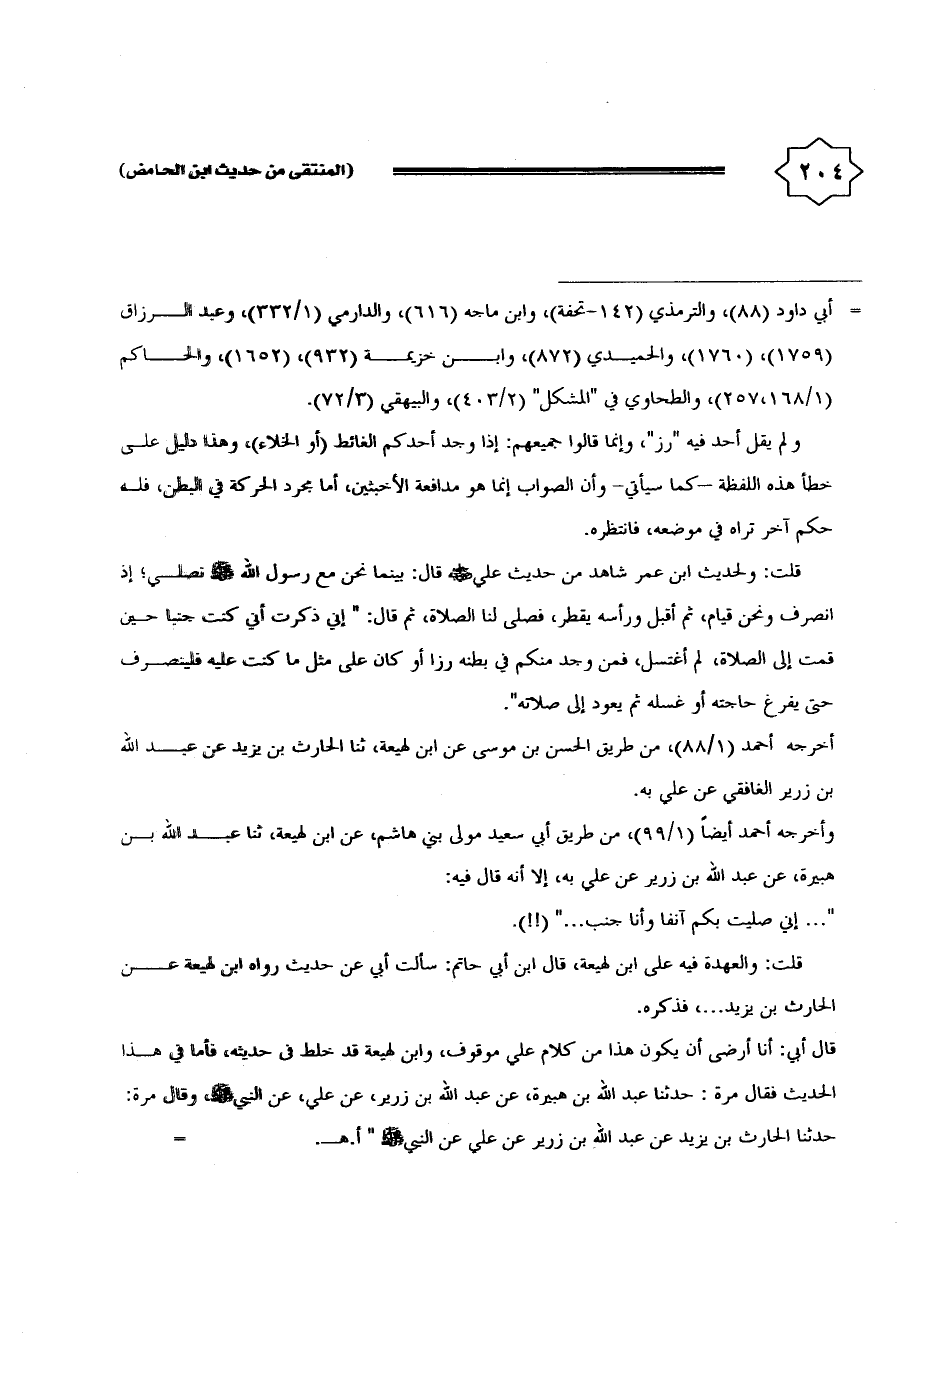 ٢٠٤ (المنتقى من حديث ابن الحامض)
= أبي داود (٨٨)، والترمذي (١٤٢-تحفة)، وابن ماجه (٦١٦)، والدارمي (٣٣٢/١)، وعبد الـــرزاق
(١٧٥٩)، (١٧٦٠)، والحميدي (٨٧٢)، وابــــن خزيمــــة (٩٣٢)، (١٦٥٢)، والحــــاكم
(٢٥٧،١٦٨/١)، والطحاوي في "المشكل" (٤٠٣/٢)، والبيهقي (٧٢/٣).
و لم يقل أحد فيه "رز"، وإنما قالوا جميعهم: إذا وجد أحدكم الغائط (أو الخلاء)، وهذا دليل علـى
خطأ هذه اللفظة –كما سيأتي– وأن الصواب إنما هو مدافعة الأخبثين، أما مجرد الحركة في البطن، فلـه
حكم آخر تراه في موضعه، فانتظره.
قلت: ولحديث ابن عمر شاهد من حديث علي ﷺ قال: بينما نحن مع رسول الله ﷺ نصلـي؛ إذ
انصرف ونحن قيام، ثم أقبل ورأسه يقطر، فصلى لنا الصلاة، ثم قال: " إني ذكرت أني كنت جنبا حـين
قمت إلى الصلاة، لم أغتسل، فمن وجد منكم في بطنه رزا أو كان على مثل ما كنت عليه فلينصـرف
حتى يفرغ حاجته أو غسله ثم يعود إلى صلاته".
أخرجه أحمد (٨٨/١)، من طريق الحسن بن موسى عن ابن لهيعة، ثنا الحارث بن يزيد عن عبـــد الله
بن زرير الغافقي عن علي به.
وأخرجه أحمد أيضاً (٩٩/١)، من طريق أبي سعيد مولى بني هاشم، عن ابن لهيعة، ثنا عبـــد الله بـــن
هبيرة، عن عبد الله بن زرير عن علي به، إلا أنه قال فيه:
"... إني صليت بكم آنفا وأنا جنب..." (!!).
قلت: والعهدة فيه على ابن لهيعة، قال ابن أبي حاتم: سألت أبي عن حديث رواه ابن لهيعة عـــن
الحارث بن يزيد...، فذكره.
قال أبي: أنا أرضى أن يكون هذا من كلام علي موقوف، وابن لهيعة قد خلط فى حديثه، فأما في هـــذا
الحديث فقال مرة : حدثنا عبد الله بن هبيرة، عن عبد الله بن زرير، عن علي، عن النبي ﷺ، وقال مرة:
حدثنا الحارث بن يزيد عن عبد الله بن زرير عن علي عن النبي ﷺ " أ.هـ. =